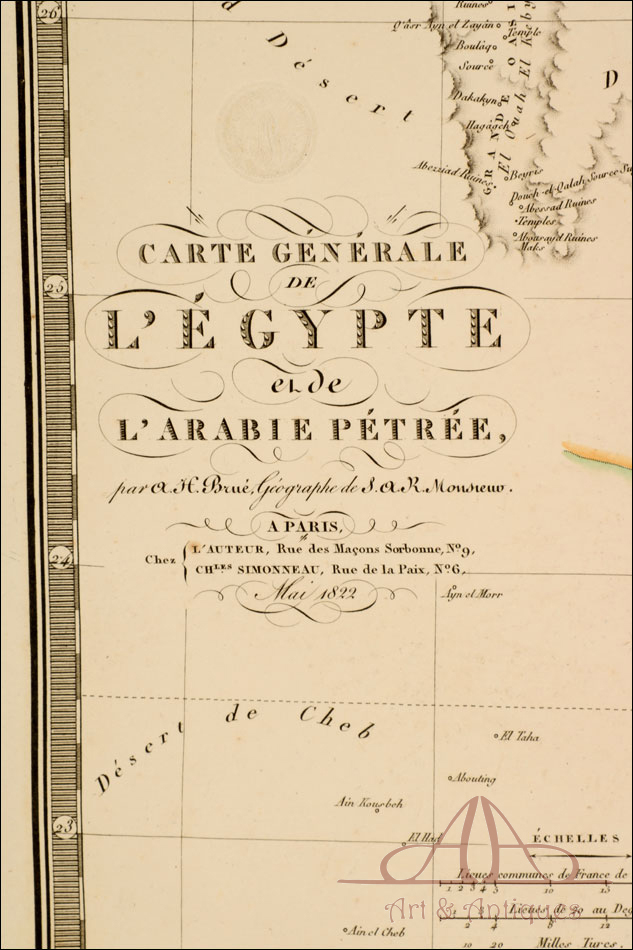 26
Ruines
Q'âsr Ayn el Zayân
Temple
Boulâq
Source
Désert
D
Dakakyn
Hagâgeh
GRANDE OASI
El Ouah El Keby
Aberziad Ruines
Beyris
Douch-el-Qalah Source Su
Abessad Ruines
Temples
Abousayd Ruines
Maks
CARTE GÉNÉRALE
25
DE
L'ÉGYPTE
et de
L'ARABIE PÉTRÉE,
par A.H. Brué, Géographe de S.A.R. Monsieur.
A PARIS,
Chez
L'AUTEUR, Rue des Maçons Sorbonne, Nº 9,
24
CHLES SIMONNEAU, Rue de la Paix, Nº 6,
Mai 1822
Ayn el Morr
Désert de Cheb
El Taha
Abouting
Ain Kousbeh
23
El Had
ÉCHELLES
Lieues communes de France de
1 2 3 4 5 10 15
Art & Antiques
Lieues de 20 au Deg
1 2 3 4 5 10
Ain el Cheb
10 20 Milles Turcs.